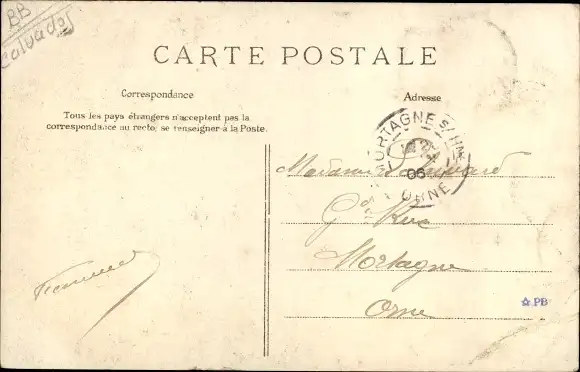 BB
Calvados
CARTE POSTALE
Correspondance
Adresse
Tous les pays étrangers n'acceptent pas la
correspondance au recto; se renseigner à la Poste.
MORTAGNE S/ HNE
06
ORNE
Madame
Gde Rue
Mortagne
Orne
☆ PB